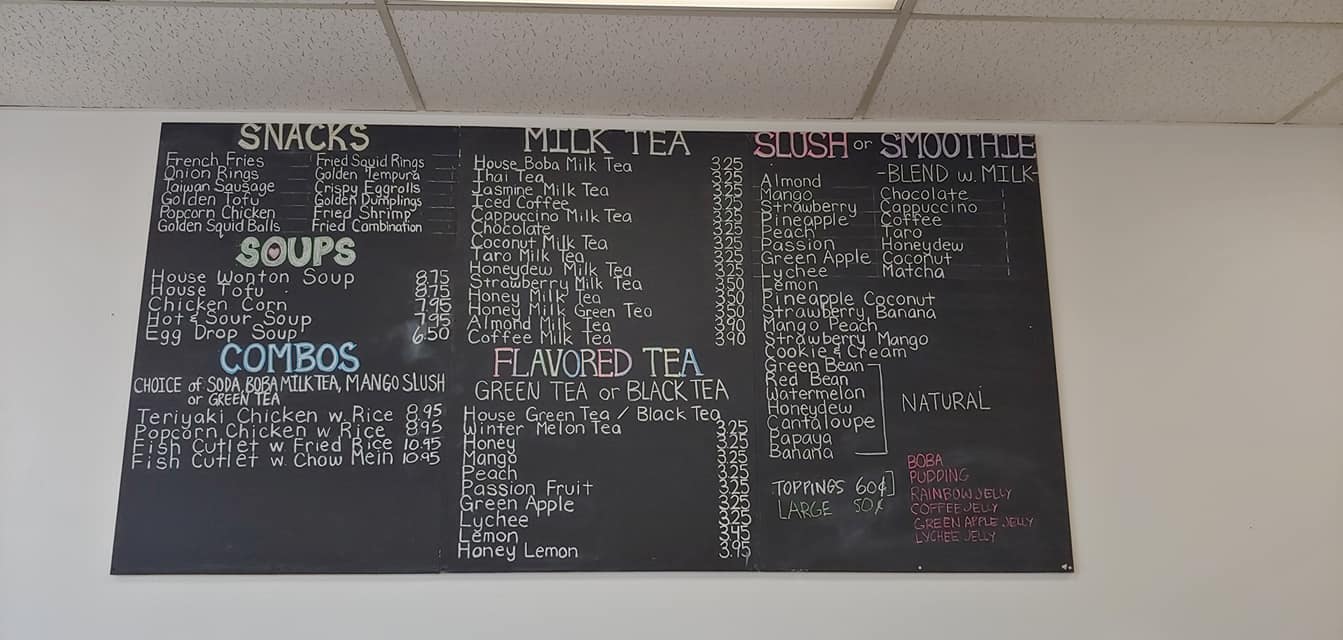 SNACKS
French Fries
Onion Rings
Taiwan Sausage
Golden Tofu
Popcorn Chicken
Golden Squid Balls
Fried Squid Rings
Golden Tempura
Crispy Eggrolls
Golden Dumplings
Fried Shrimp
Fried Combination
SOUPS
House Wonton Soup 8.75
House Tofu 8.75
Chicken Corn 7.95
Hot & Sour Soup 7.95
Egg Drop Soup 6.50
COMBOS
CHOICE of SODA, BOBA MILK TEA, MANGO SLUSH
or GREEN TEA
Teriyaki Chicken w. Rice 8.95
Popcorn Chicken w Rice 8.95
Fish Cutlet w. Fried Rice 10.95
Fish Cutlet w. Chow Mein 10.95
MILK TEA
House Boba Milk Tea 3.25
Thai Tea 3.25
Jasmine Milk Tea 3.25
Iced Coffee 3.25
Cappuccino Milk Tea 3.25
Chocolate 3.25
Coconut Milk Tea 3.25
Taro Milk Tea 3.25
Honeydew Milk Tea 3.25
Strawberry Milk Tea 3.50
Honey Milk Tea 3.50
Honey Milk Green Tea 3.50
Almond Milk Tea 3.90
Coffee Milk Tea 3.90
FLAVORED TEA
GREEN TEA or BLACK TEA
House Green Tea / Black Tea
Winter Melon Tea 3.25
Honey 3.25
Mango 3.25
Peach 3.25
Passion Fruit 3.25
Green Apple 3.25
Lychee 3.25
Lemon 3.45
Honey Lemon 3.95
SLUSH or SMOOTHIE
-BLEND w. MILK-
Almond
Mango
Strawberry
Pineapple
Peach
Passion
Green Apple
Lychee
Lemon
Pineapple Coconut
Strawberry Banana
Mango Peach
Strawberry Mango
Cookie & Cream
Green Bean
Red Bean
Watermelon
Honeydew
Cantaloupe
Papaya
Banana
Chocolate
Cappuccino
Coffee
Taro
Honeydew
Coconut
Matcha
NATURAL
TOPPINGS 60¢
LARGE 50¢
BOBA
PUDDING
RAINBOW JELLY
COFFEE JELLY
GREEN APPLE JELLY
LYCHEE JELLY